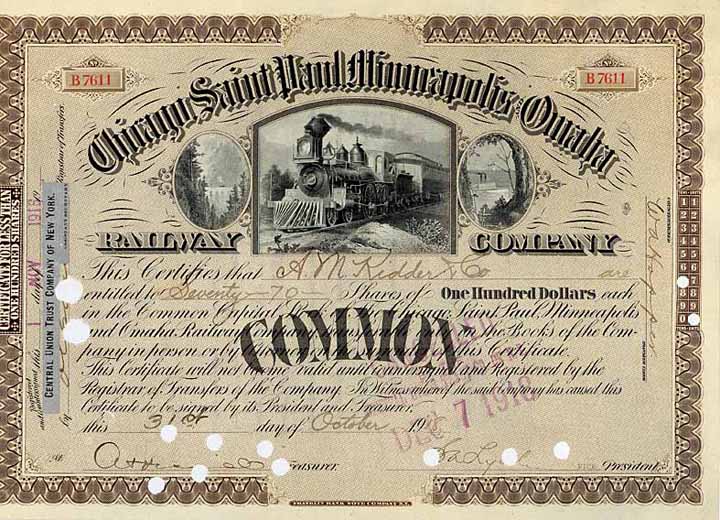 B7611 B7611
Chicago, Saint Paul, Minneapolis and Omaha
RAILWAY COMPANY
This Certifies that A M Kidder & Co are
entitled to Seventy - 70 - Shares of One Hundred Dollars each
in the Common Capital Saint Paul Minneapolis
and Omaha Railway the Books of the Com-
pany in person or by of this Certificate.
COMMON
This Certificate will not become valid until countersigned and Registered by the
Registrar of Transfers of the Company. In Witness whereof the said Company has caused this
Certificate to be signed by its President and Treasurer.
this 31st day of October 191
DEC 7 1918
Treasurer. VICE President.
FRANKLIN BANK NOTE COMPANY N.Y.
CERTIFICATE FOR LESS THAN
ONE HUNDRED SHARES
Registrar of Transfers.
1 NOV 1918
CENTRAL UNION TRUST COMPANY OF NEW YORK.
by